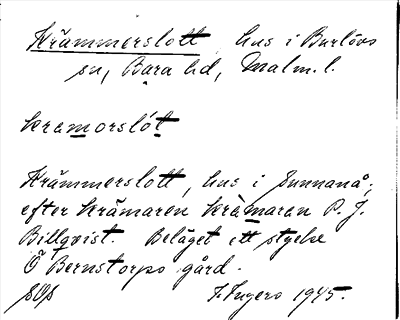 Krämmerslott, hus i Burlövs
sn, Bara hd, Malm. l.
kramorslót
Krämmerslott, hus i Sunnanå,
efter krämaren kràmaran P. J.
Billqvist. Beläget ett stycke
Ö Bernstorps gård.
F. Ingers 1945.